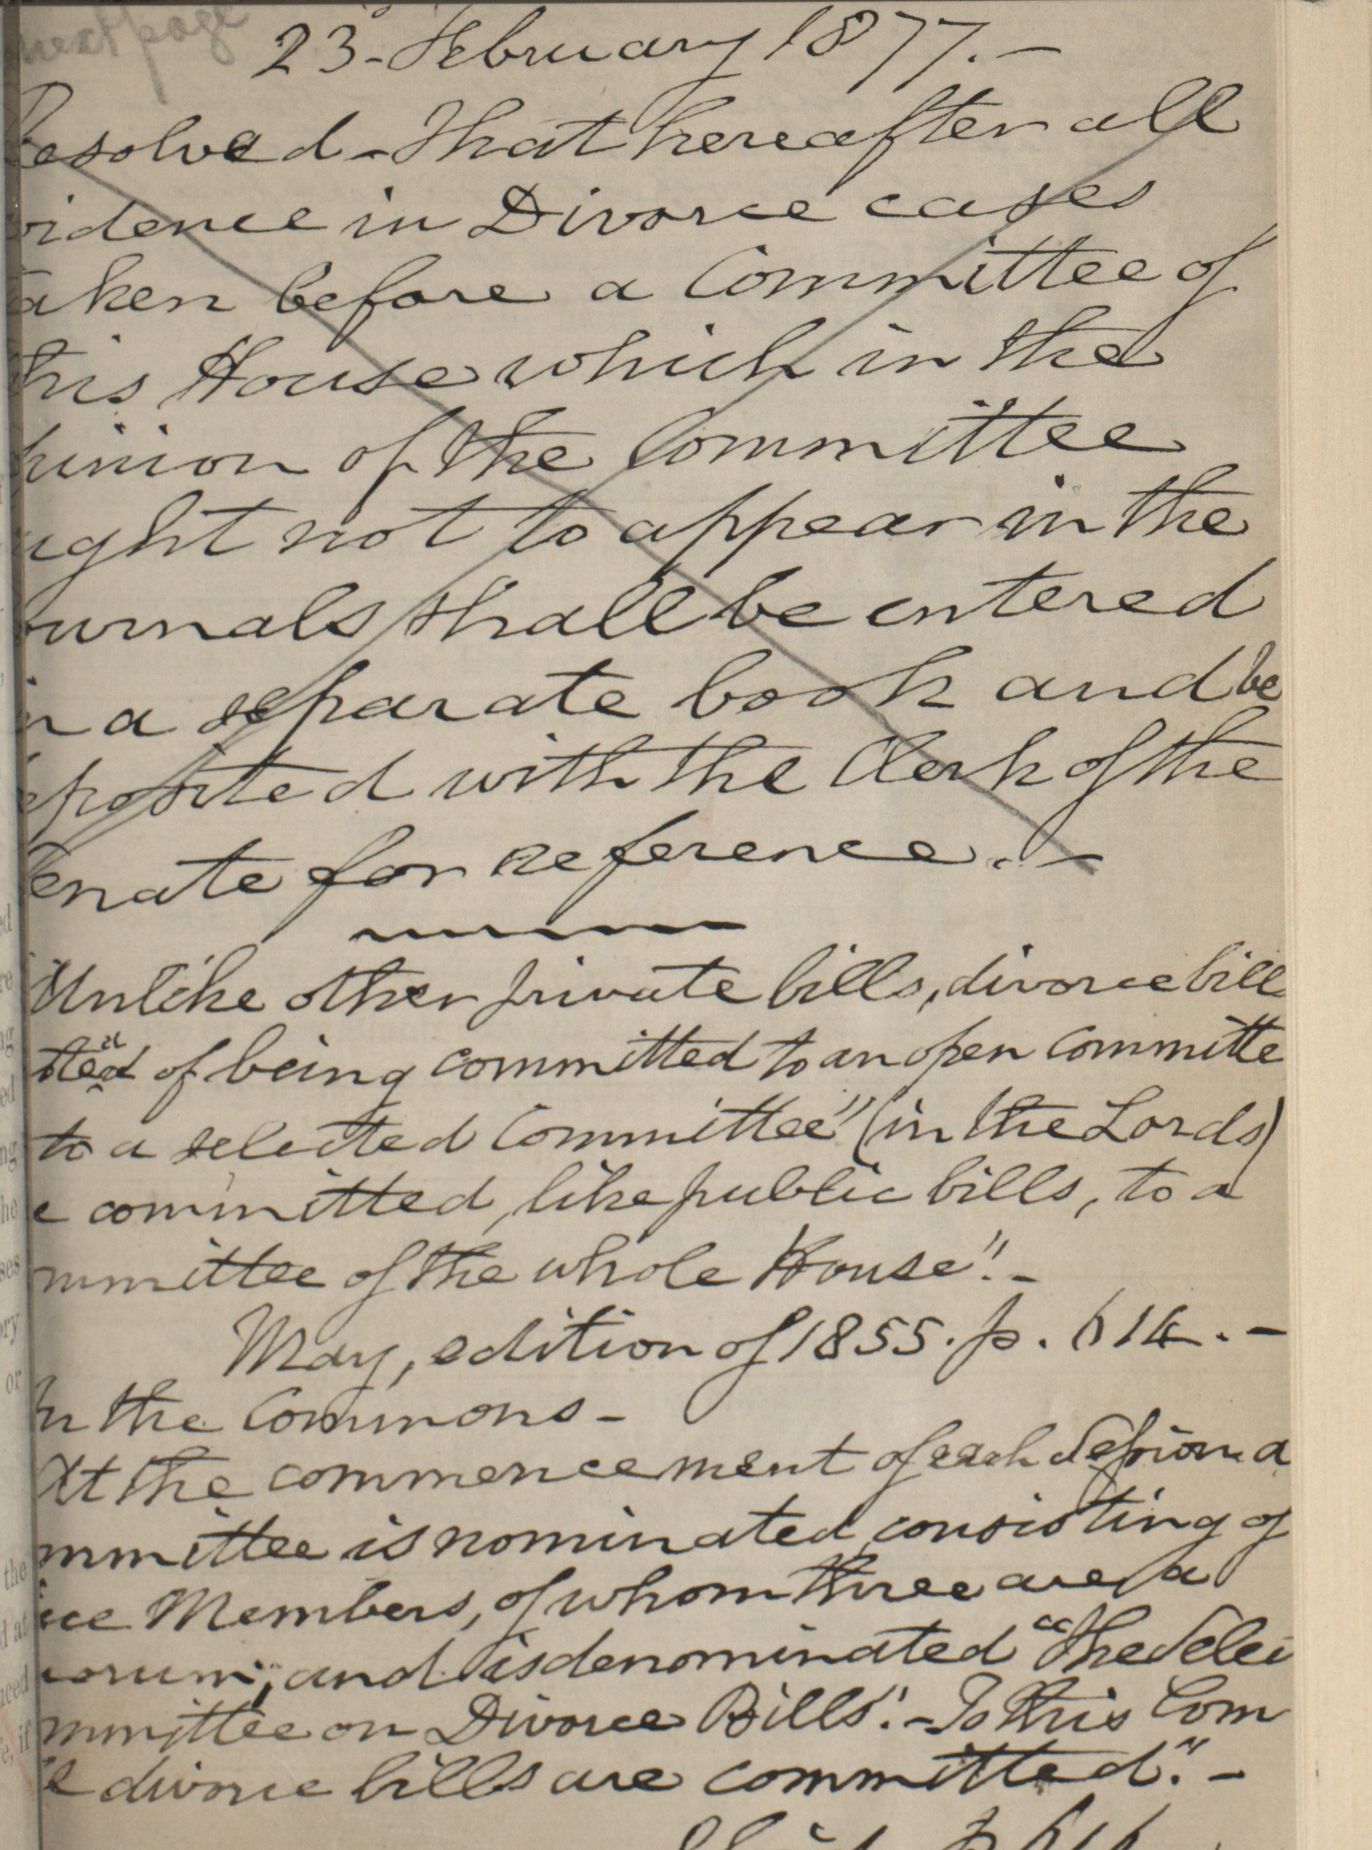 next page
23 - February 1877. -
Resolved - That hereafter all
vidence in Divorce cases
aken before a Committee of
his House which in the
pinion of the Committee
ught not to appear in the
ournals shall be entered
in a separate book and be
eposited with the Clerk of the
Senate for reference. -
Unlike other private bills, divorce bill
stead of being committed to an open committe
to a selected Committee" (in the Lords)
e committed, like public bills, to a
mmittee of the whole House". -
May, edition of 1855. p. 614. -
In the Commons -
At the commencement of each Session a
mmittee is nominated, consisting of
ine Members, of whom three are a
uorum; and is denominated "the Selec
mmittee on Divorce Bills". - To this Com
e divorce bills are committed." -
p. 616